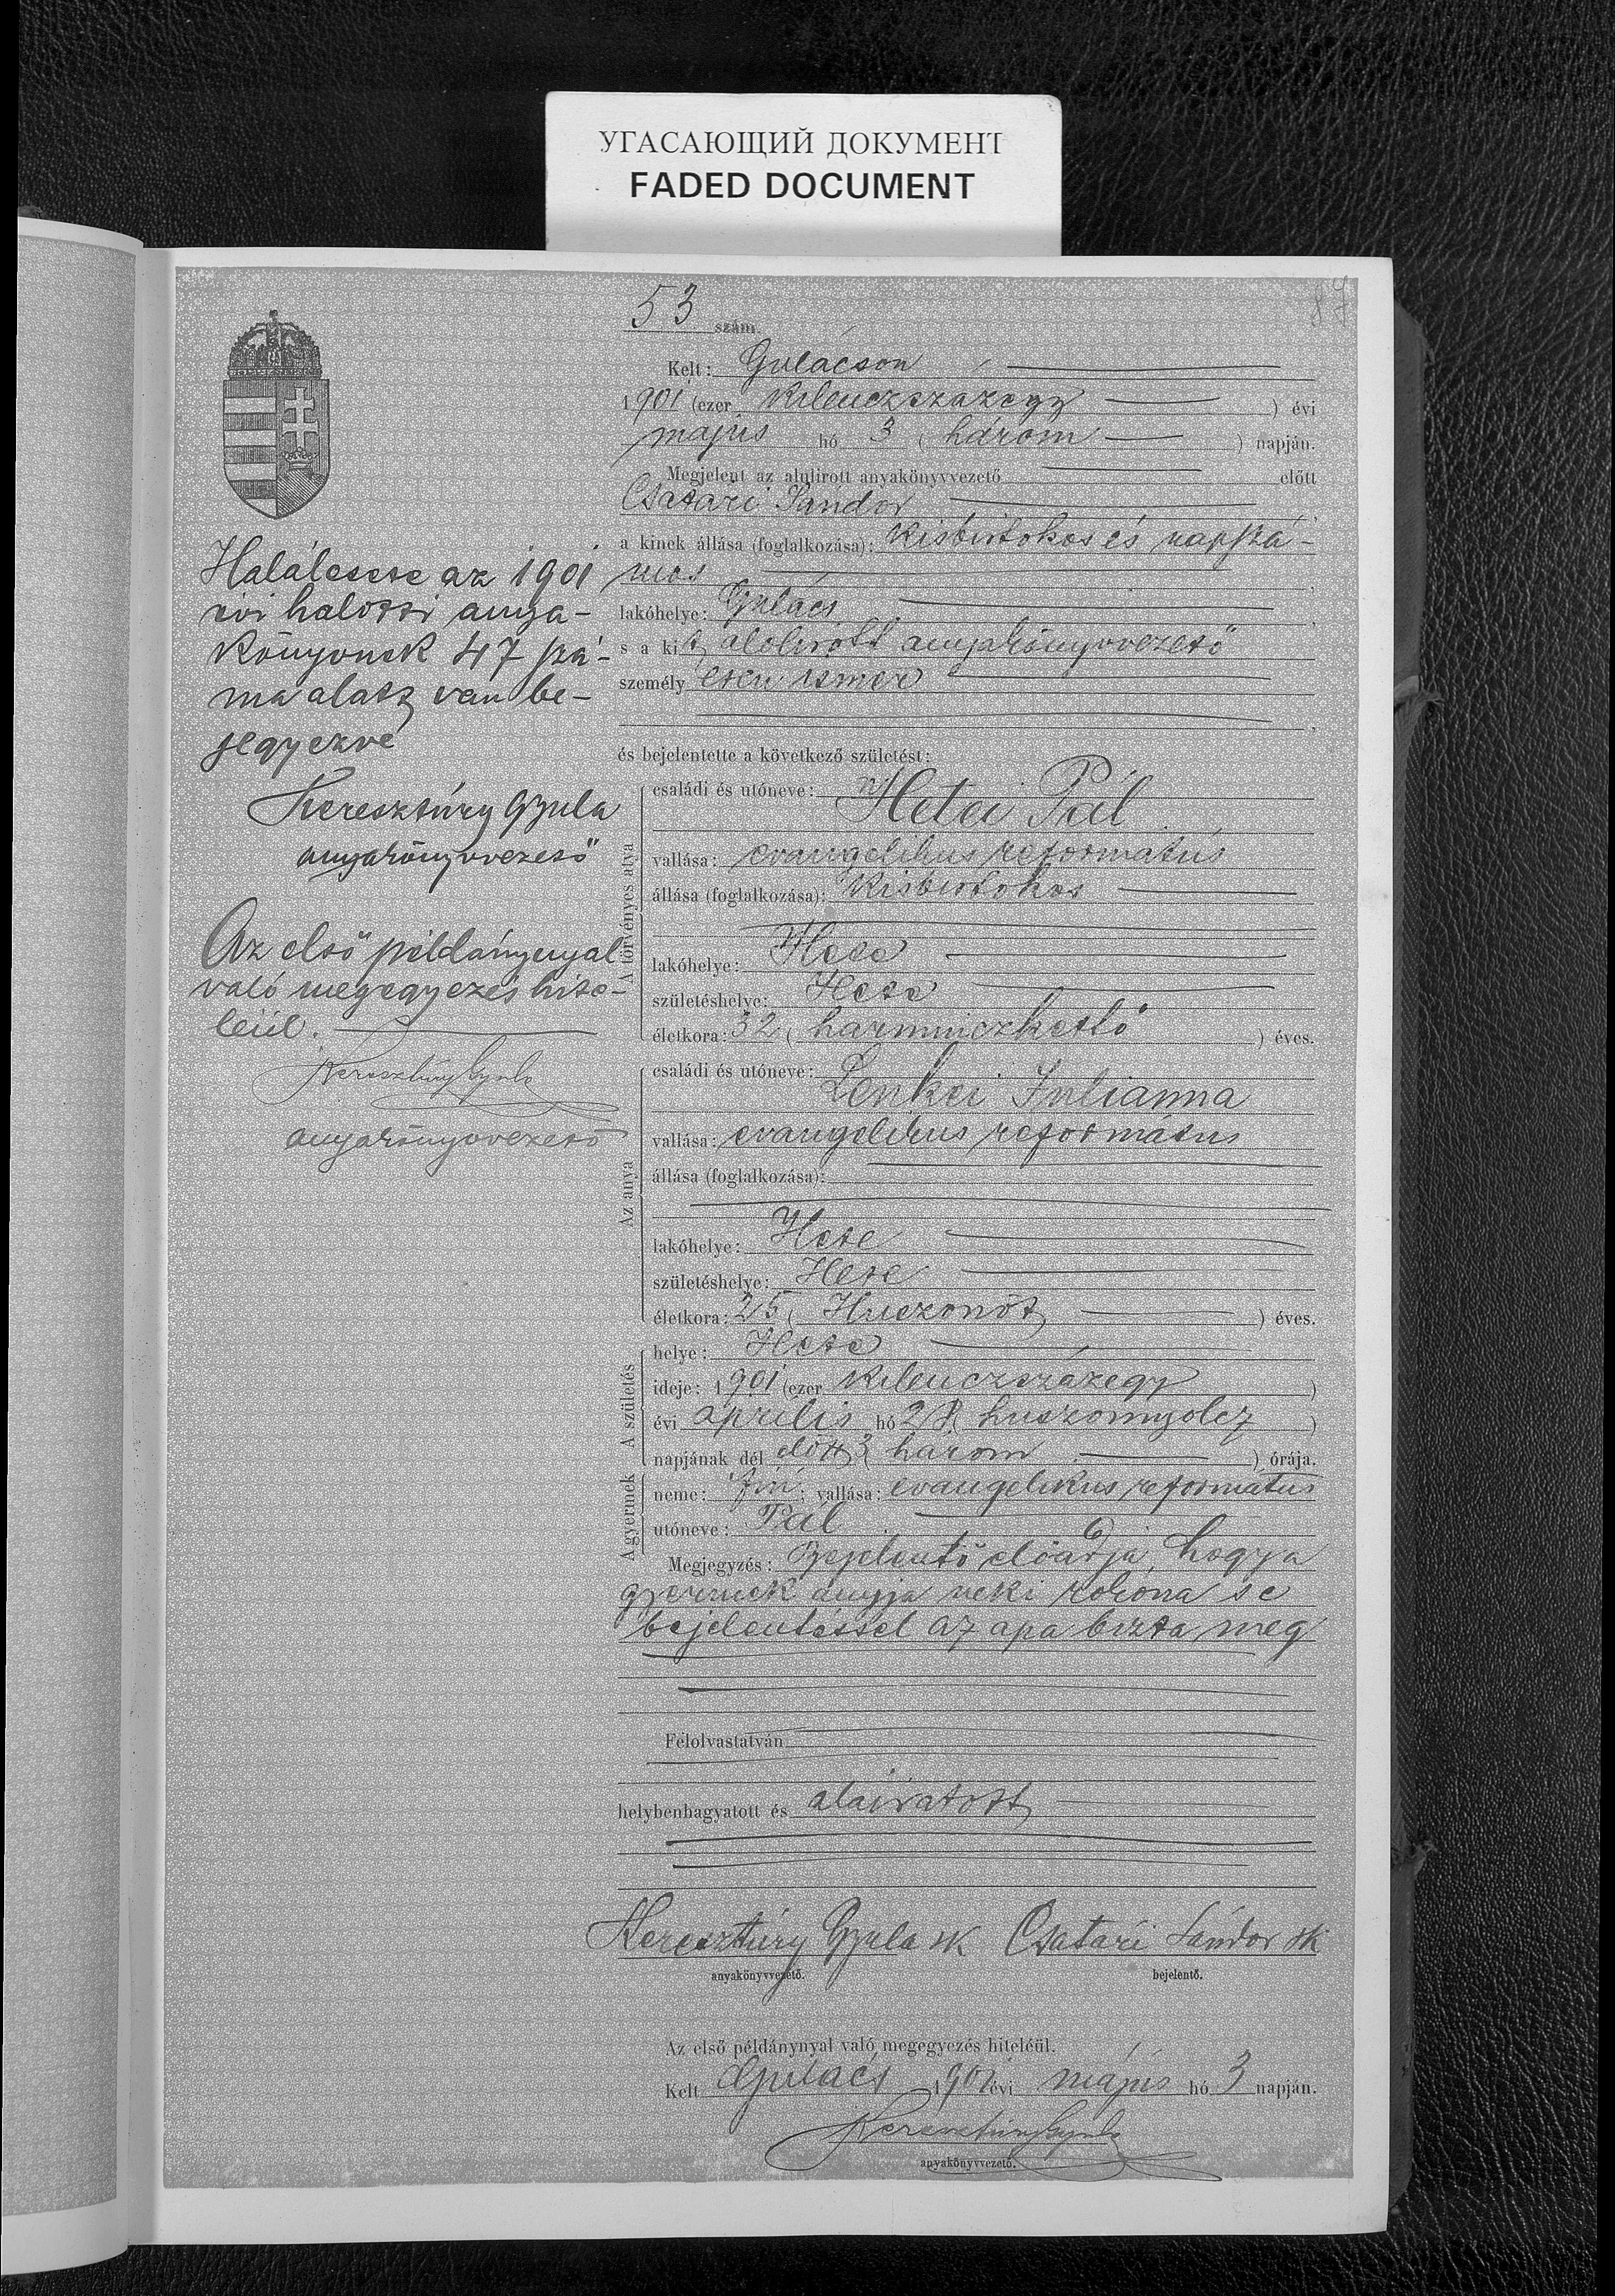 УГАСАЮЩИЙ ДОКУМЕНТ
FADED DOCUMENT
87
53 szám.
Kelt: Gulácson
1901 (ezer kilenczszázegy) évi
május hó 3 (három) napján.
Megjelent az alulirott anyakönyvvezető előtt
Csatári Sándor,
a kinek állása (foglalkozása): kisbirtokos és napszá-
mos,
lakóhelye: Gulács,
s a kit alolirott anyakönyvvezető
személyesen ismer,
és bejelentette a következő születést:
A törvényes atya
családi és utóneve: ifj
Hetei Pál
vallása: evangelikus református
állása (foglalkozása): kisbirtokos
lakóhelye: Hete
születéshelye: Hete
életkora: 32 (harminczkettő) éves.
Az anya
családi és utóneve:
Lenkei Julianna
vallása: evangelikus református
állása (foglalkozása):
lakóhelye: Hete
születéshelye: Hete
életkora: 25 (Huszonöt) éves.
A születés
helye: Hete
ideje: 1901 (ezer kilenczszázegy)
évi április hó 28 (huszonnyolcz)
napjának dél előtt 3 (három) órája.
A gyermek
neme: fiú; vallása: evangelikus református
utóneve: Pál
Megjegyzés: Bejelentő előadja, hogy a
gyermek anyja neki rokona s e
bejelentéssel az apa bizta meg
Felolvastatván
helybenhagyatott és aláiratott
Keresztúry Gyula sk Csatári Sándor sk
anyakönyvvezető. bejelentő.
Az első példánynyal való megegyezés hiteléül.
Kelt Gulács 1901 évi május hó 3 napján.
Keresztúry Gyula
anyakönyvvezető.
Halálesete az 1901
évi halotti anya-
könyvnek 47 szá-
ma alatt van be-
jegyezve
Keresztúry Gyula
anyakönyvvezető
Az első példánynyal
való megegyezés hite-
léül.
Keresztúry Gyula
anyakönyvvezető